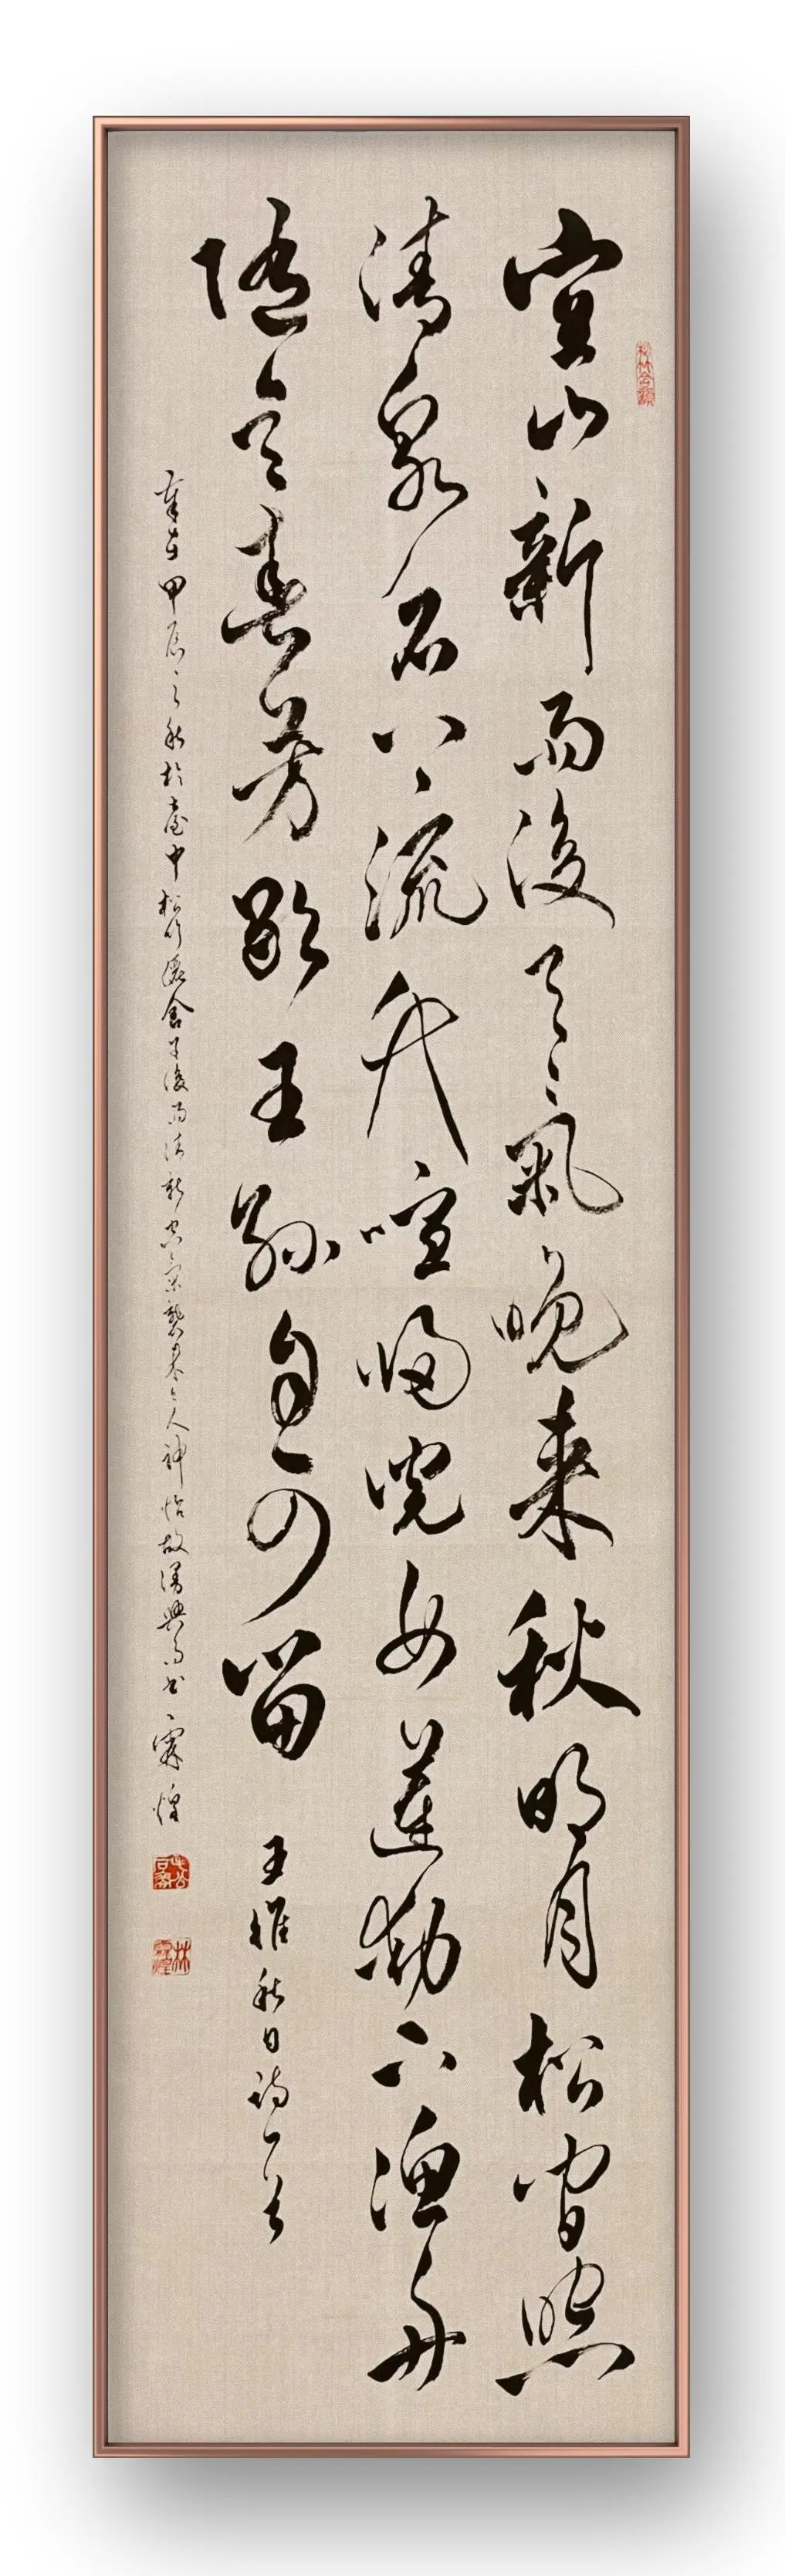 空山新雨後天氣晚來秋明月松間照
清泉石上流竹喧歸浣女蓮動下漁舟
隨意春芳歇王孫自可留 王維秋日詩一首
歲在甲辰之秋於臺中松竹舍後雨清新空氣襲來令人神怡故興而書 霖煌